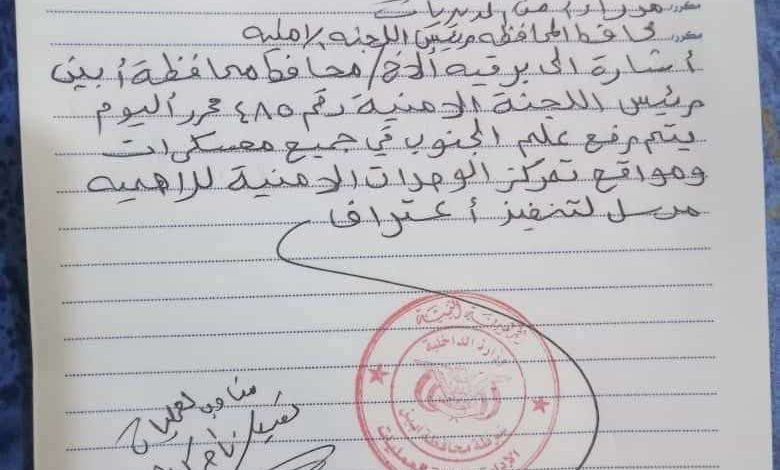 مكرر مدراء أمن المديريات
مكرر محافظ المحافظة رئيس اللجنة الامنية
أشارة الى برقية الاخ/محافظ محافظة أبين
رئيس اللجنة الامنية رقم ٤٨٥ محرر أليوم
يتم رفع علم الجنوب في جميع معسكرات
ومواقع تمركز الوحدات الامنية للاهمية
مرسل لتنفيذ أعتراف
الجمهورية اليمنية
وزارة الداخلية
شرطة محافظة أبين
مناوب عمليات